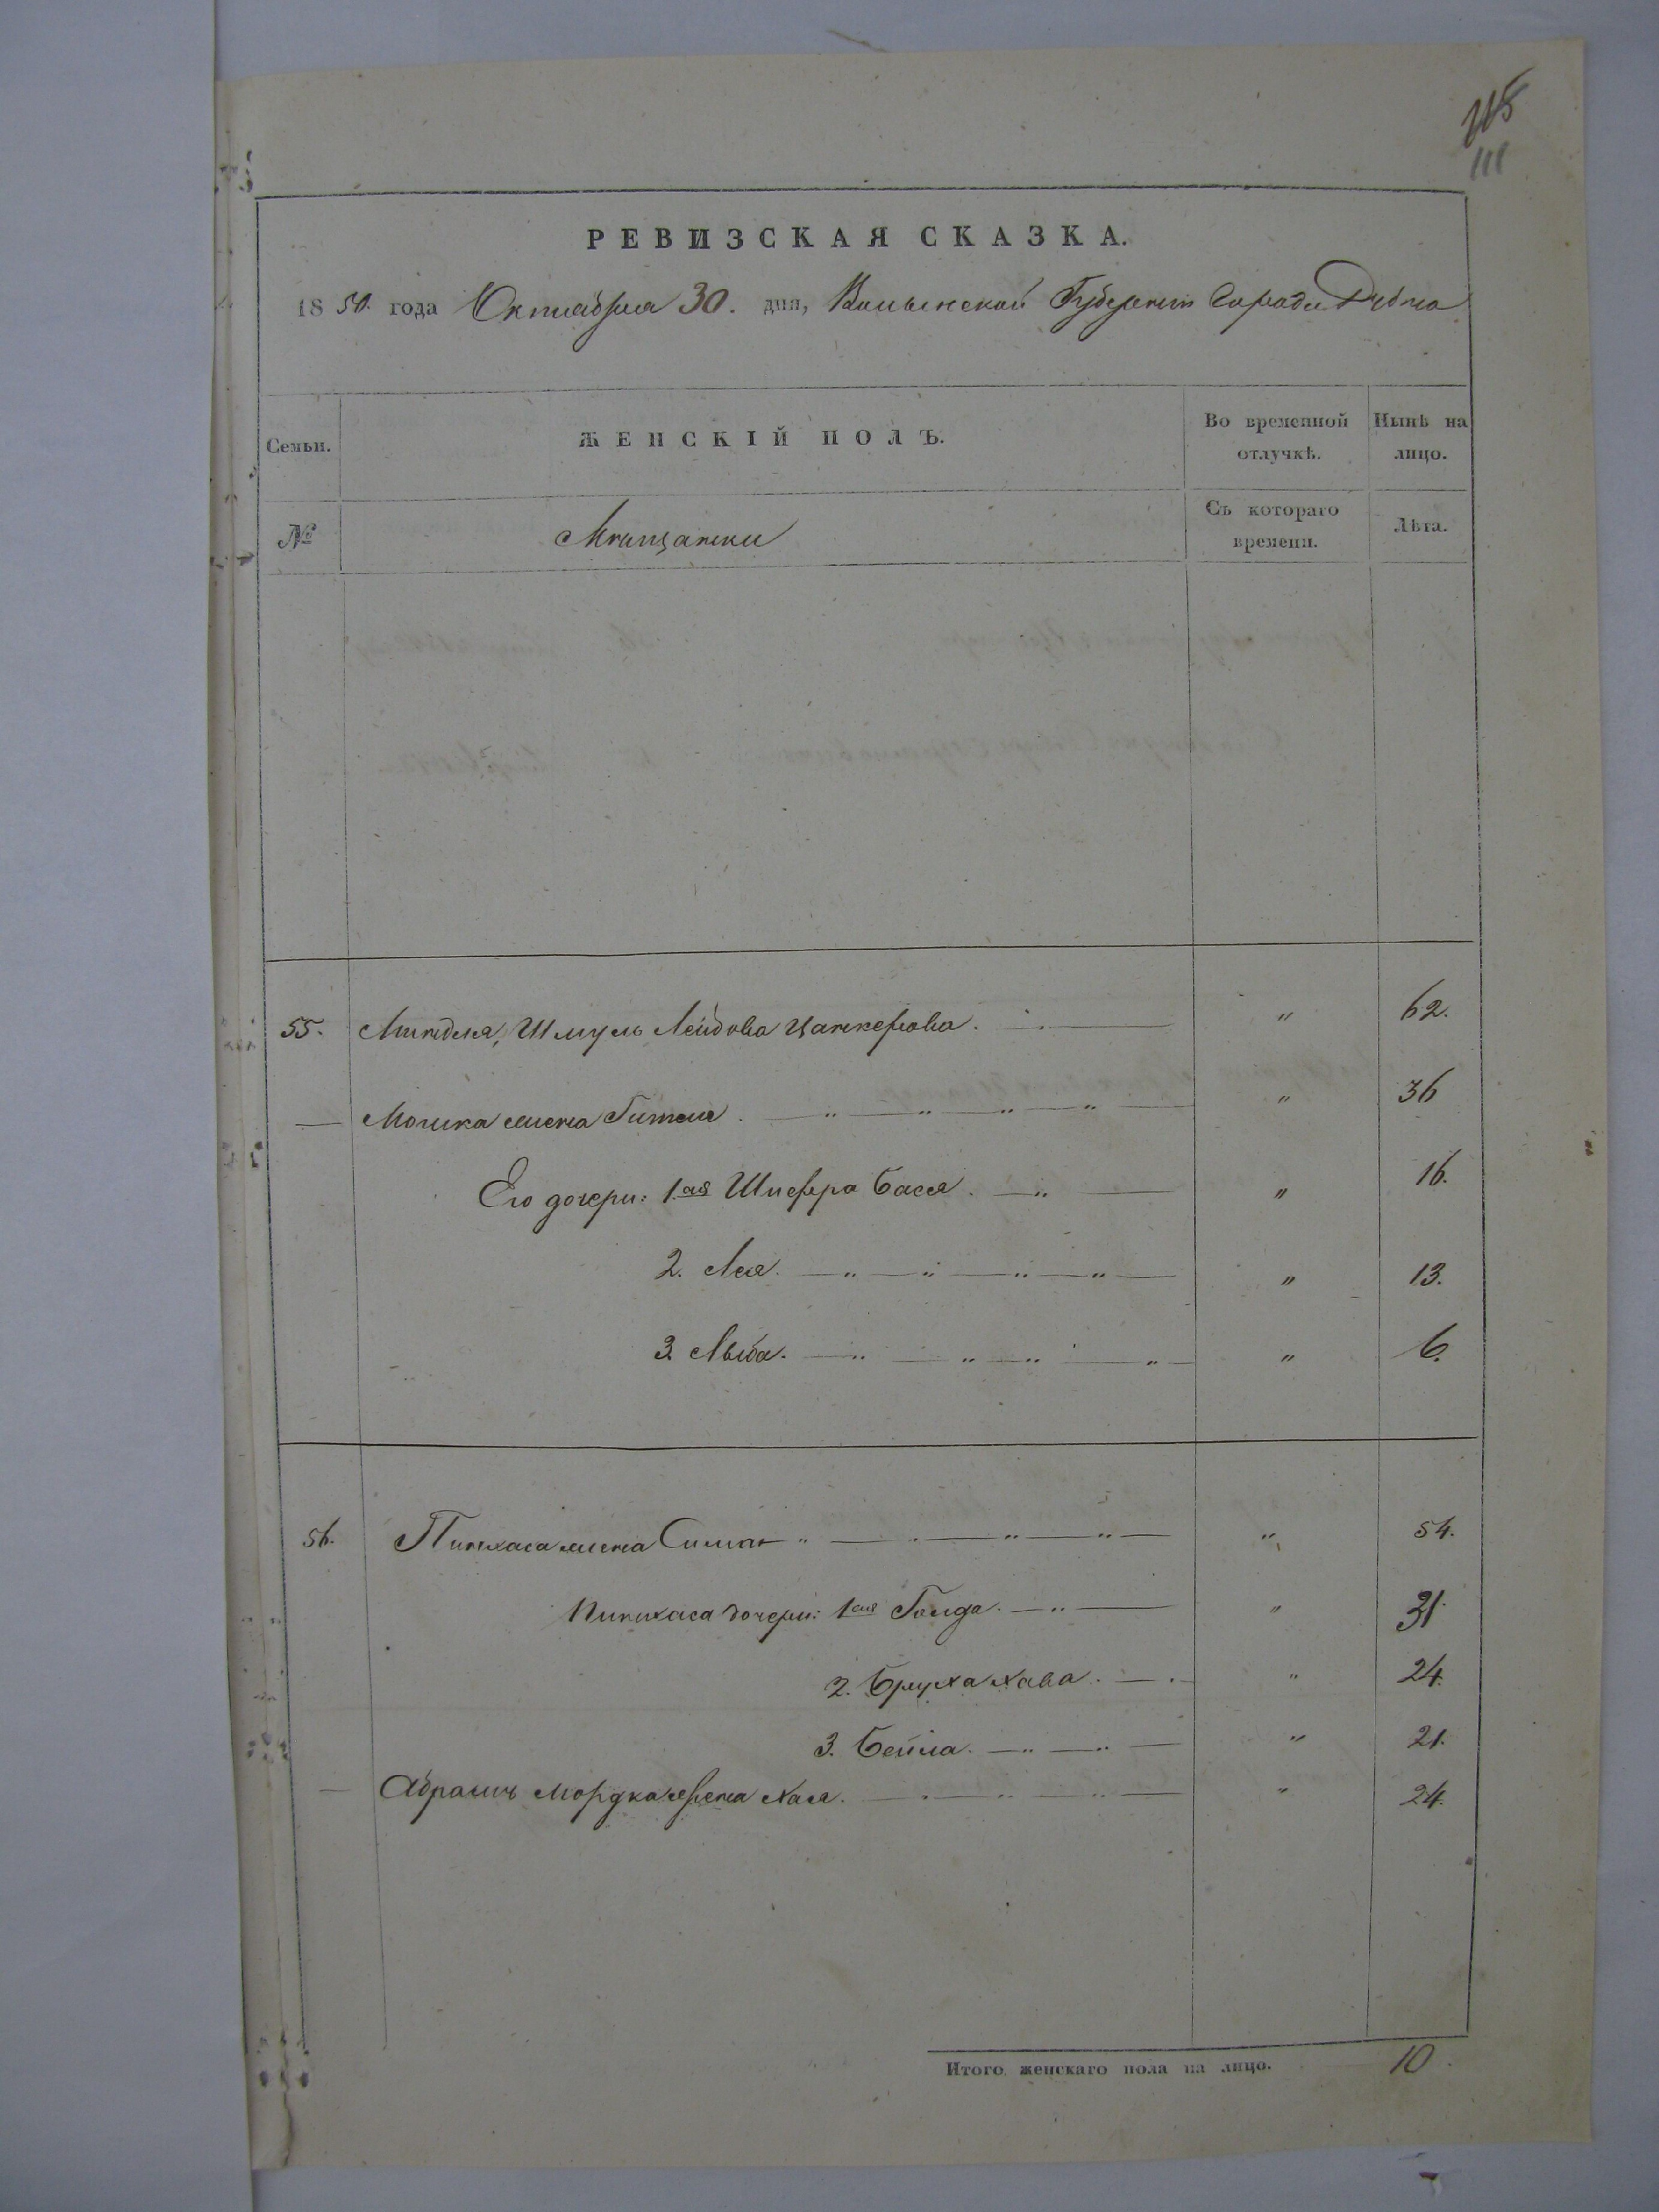 118
111
РЕВИЗСКАЯ СКАЗКА.
1850. года Октября 30. дня, Волынской Губернии Города Дубна
Семьи.
ЖЕНСКІЙ ПОЛЪ.
Во временной отлучкѣ.
Нынѣ на лицо.
№
Мѣщанки
Съ котораго времени.
Лѣта.
55. Миндля, Шмуль Лейбова Цанкерова. " 62.
— Мошка жена Гителя. " 36
Его дочери: 1.ая Шифра Бася. " 16.
2. Лея. " 13.
3. Люба. " 6.
56. Пинхаса жена Сима " 54.
Пинхаса дочери: 1ая Голда. " 31.
2. Бруха Хава. " 24.
3. Бейла. " 21.
— Абрамъ Мордка жена Хая. " 24.
Итого женскаго пола на лицо. 10.